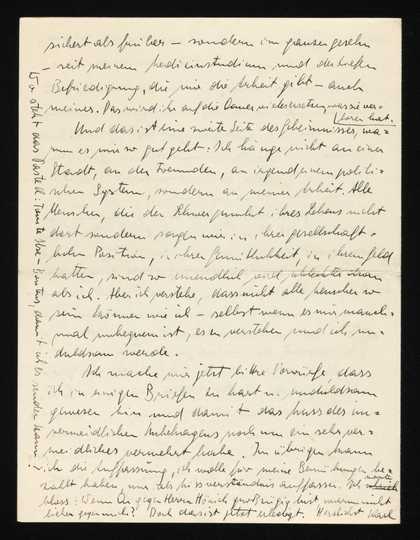 sichert als früher – sondern im ganzen gesehn
– seit meinem Medizinstudium und der tiefen
Befriedigung, die mir die Arbeit gibt – auch
meines. Das wird ihr auf die Dauer nie ersetzen, was sie ver-
loren hat.
Und das ist eine zweite Seite des Geheimnisses, wa-
rum es mir so gut geht: Ich hänge nicht an einer
Stadt, an den Freunden, an irgendeinem politi-
schen System, sondern an meiner Arbeit. Alle
Menschen, die den Schwerpunkt ihres Lebens nicht
dort sondern sagen wir in ihrer gesellschaft-
lichen Position, in ihrer Gemütlichkeit, in ihrem Geld
hatten, sind so unendlich viel
als ich. Aber ich verstehe, dass nicht alle Menschen so
sein können wie ich – selbst wenn es mir manch-
mal unbequem ist, es zu verstehen und ich un-
duldsam werde.
Ich mache mir jetzt bittre Vorwürfe, dass
ich in einigen Briefen zu hart u. unduldsam
gewesen bin und damit das Mass des un-
vermeidlichen Unbehagens noch um ein sehr ver-
meidliches vermehrt habe. Im übrigen kann
ich die Auffassung, ich wolle für meine Bemühungen be-
zahlt haben, nur als Missverständnis auffassen. Ich meinte
bloss: Wenn Du gegen Herrn großzügig bist warum nicht
lieber gegen mich? Doch das ist jetzt erledigt. Herzlichst Karl
Wo steht das Pastell: Tante Else – damit ich es senden kann?